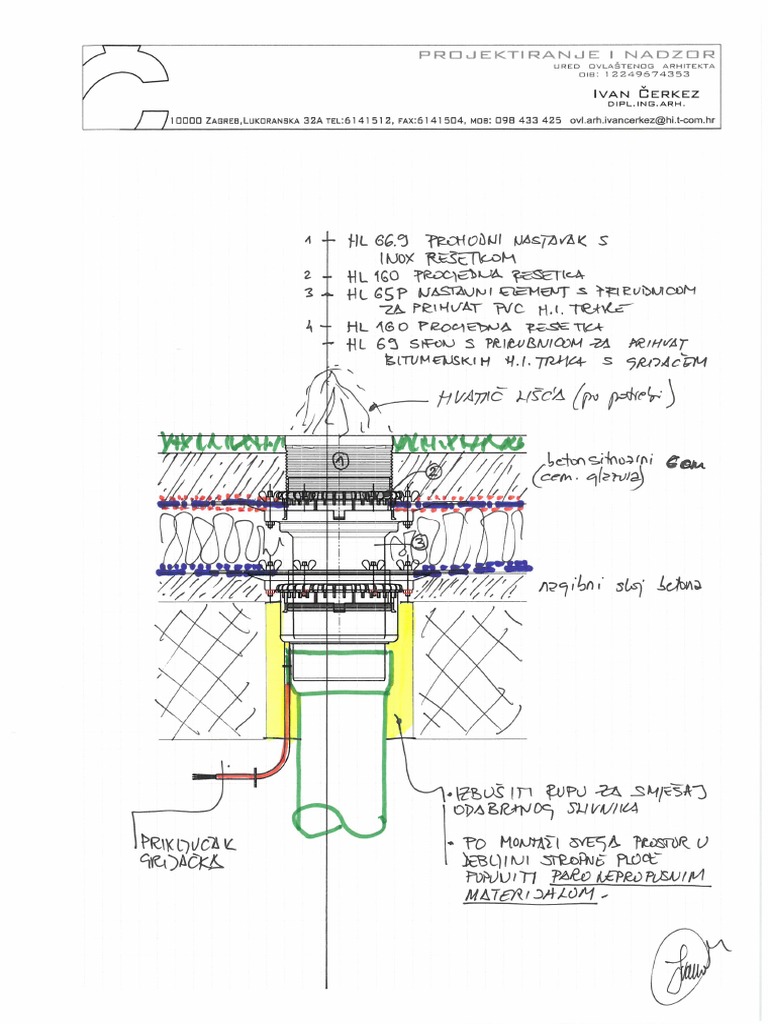 PROJEKTIRANJE I NADZOR
URED OVLAŠTENOG ARHITEKTA
OIB: 12249674353
IVAN ČERKEZ
DIPL.ING.ARH.
10000 ZAGREB, LUKORANSKA 32A TEL:6141512, FAX:6141504, MOB: 098 433 425 ovl.arh.ivancerkez@hi.t-com.hr
1 HL 66.9 PROHODNI NASTAVAK S
INOX REŠETKOM
2 HL 160 PROCJEDNA REŠETKA
3 HL 65P NASTAVNI ELEMENT S PRIRUBNICOM
ZA PRIHVAT PVC H.I. TRAKE
4 HL 160 PROCJEDNA REŠETKA
HL 69 SIFON S PRIRUBNICOM ZA PRIHVAT
BITUMENSKIH H.I. TRAKA S GRIJAČEM
HVATIČ LIŠĆA (po potrebi)
1
beton sitnozrni 6 cm
(cem. glazura)
2
3
nagibni sloj betona
PRIKLJUČAK
GRIJAČKA
• IZBUŠITI RUPU ZA SMJEŠAJ
ODABRANOG SLIVNIKA
• PO MONTAŽI SVEGA PROSTOR U
DEBLJINI STROPNE PLOČE
POPUNITI PARONEPROPUSNIM
MATERIJALOM -